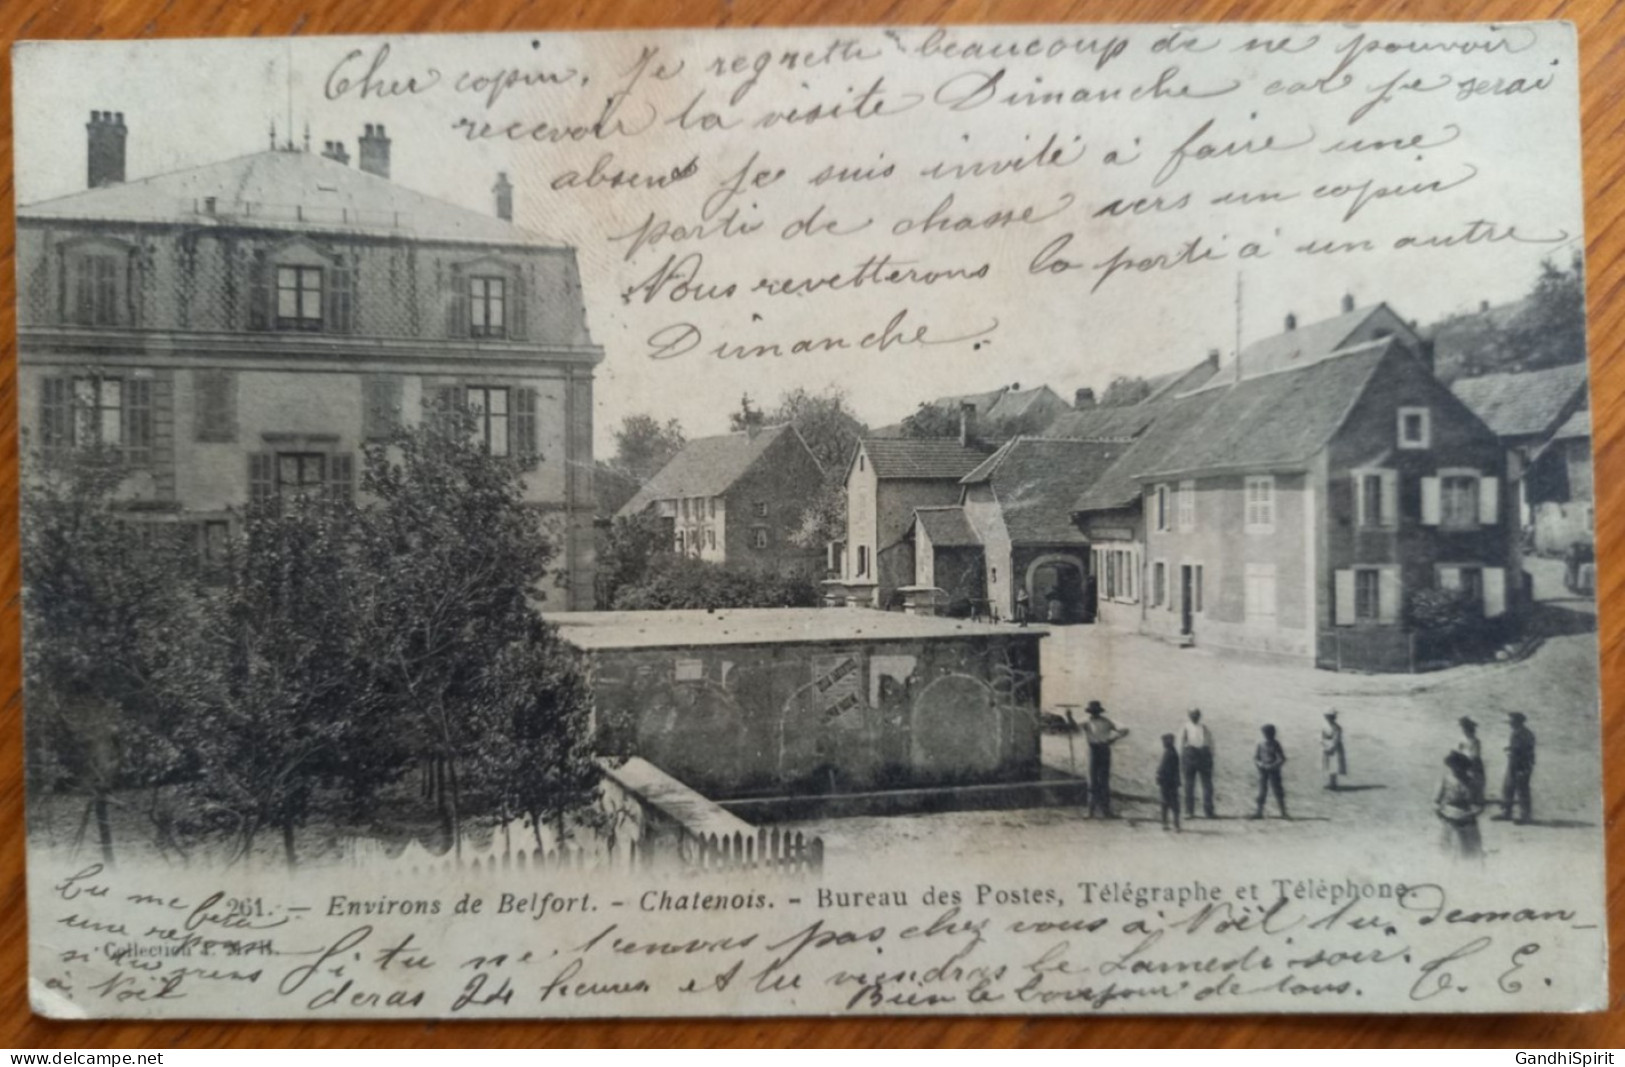 Cher copin, Je regrette beaucoup de ne pouvoir
recevoir la visite Dimanche car je serai
absent je suis invité à faire une
parti de chasse vers un copin
Nous revetterons la parti à un autre
Dimanche.
261. - Environs de Belfort. - Chatenois. - Bureau des Postes, Télégraphe et Téléphone.
Collection
Tu me fera
une reponse
si tu viens
à Noël
Si tu ne pas chez vous à Noël tu deman-
deras 24 heures et tu viendras le Samedi soir.
Bien le bonjour de tous. C. E.
GandhiSpirit
delcampe.net